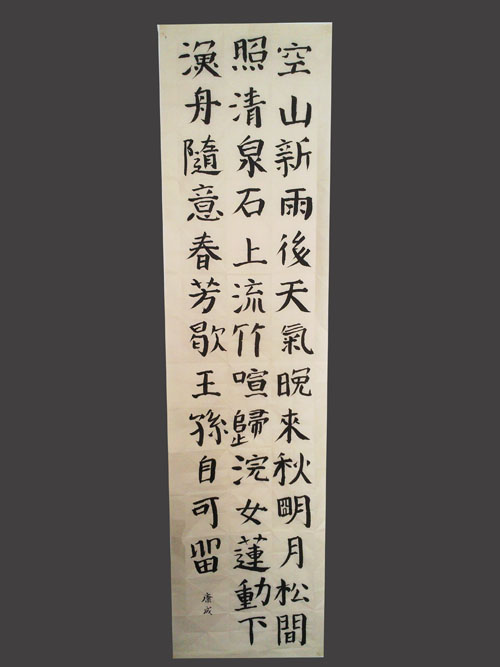 空山新雨後天氣晚來秋明月松間
照清泉石上流竹喧歸浣女蓮動下
漁舟隨意春芳歇王孫自可留
康成